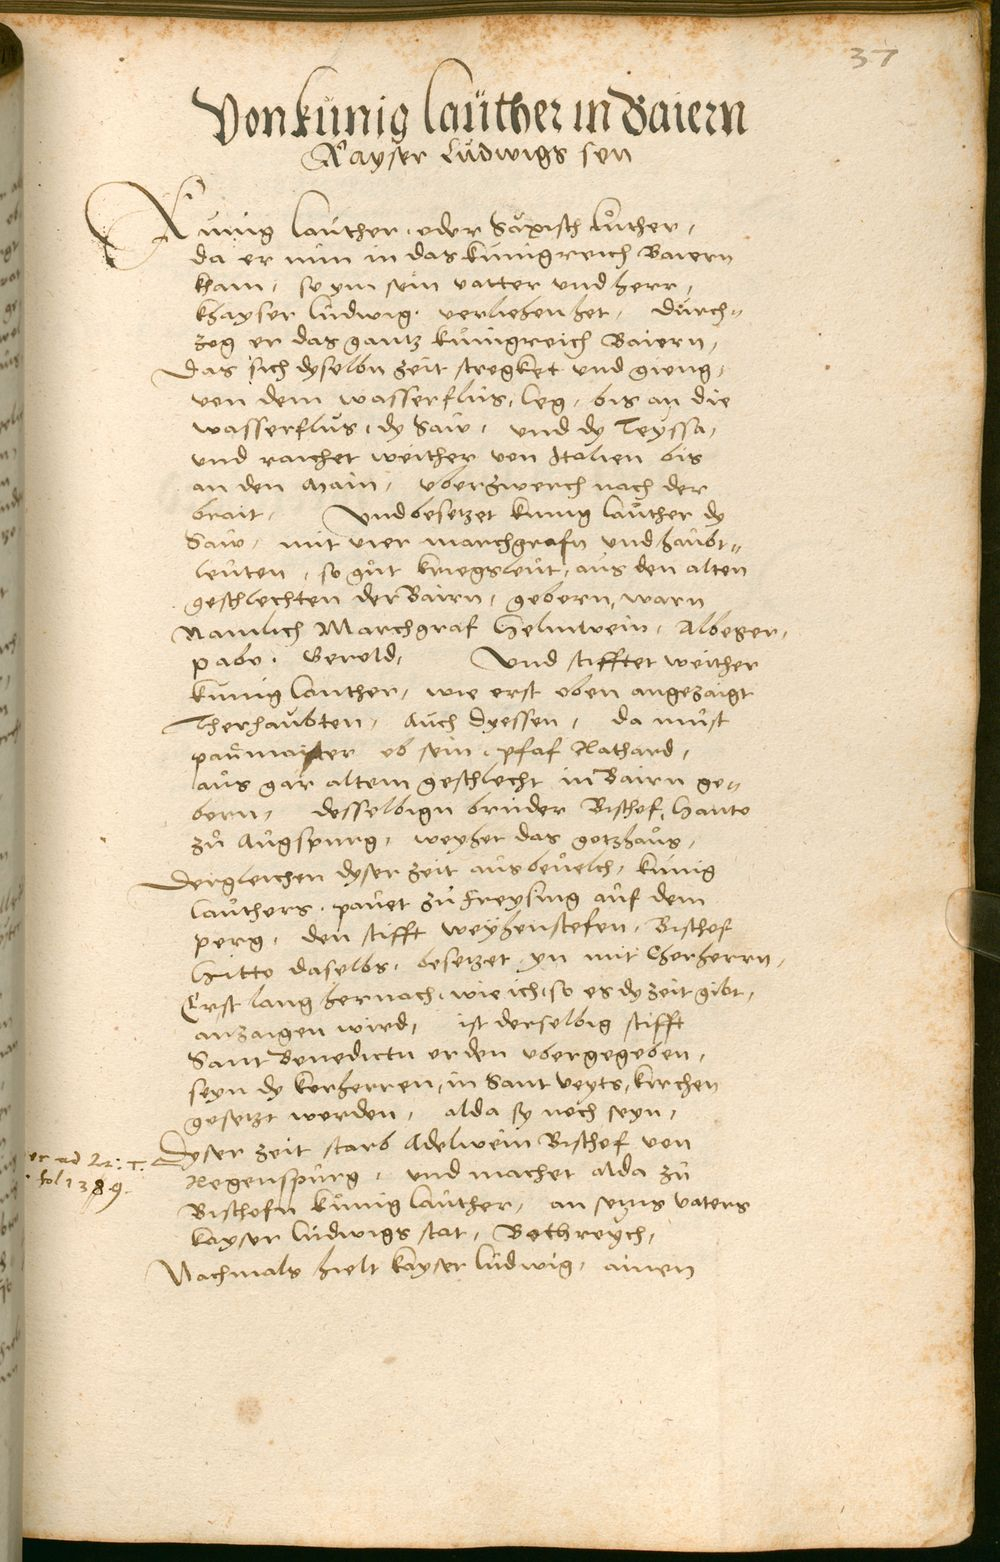 37
Von künig laüther in Baiern
Kayser Ludwigs son
Kunig lauther, oder Säxisch luther,
da er nun in das kunigreich Baiern
kham, so ym sein vatter und herr,
khayser ludwig, verlihen het, durch-
zog er das gantz künigreich Baiern,
das sich dyselbn zeit stregket und gieng,
von dem wasserflus, leg, bis an die
wasserflus, dy Saw, und dy Teyssa,
und raichet weither von Italien bis
an den Main, uberzwerch nach der
brait, Und besetzet kunig lauther dy
Saw, mit vier marchgrafn und haubt-
leuten, so gut kriegsleut, aus den alten
geschlechten der Bairn, geborn, warn
Namlich Marchgraf Helmwein, Albeger,
pabo, Gerold, Und stifftet weither
kunig lauther, wie erst oben angezaigt
Therhaubten, Auch dyessen, da must
paumaister ob sein, pfaf Rathard,
aus gar altem geschlecht in Bairn ge-
born, desselbign bruder Bischof, Hanto
zu Augspurg, weyhet das gotzhaus,
Dergleichen dyser zeit aus bevelch, kunig
lauthers, pauet zu Freysing auf dem
perg, den stifft weyhenstefen, Bischof
Hitto daselbs, besetzet yn mit Chorherrn,
Erst lang hernach, wie ich, so es dy zeit gibt,
anzaigen wird, ist derselbig stifft
Sant Benedictn orden ubergegeben,
seyn dy korherren, in Sant veyts, kirchen
gesetzt worden, alda sy noch seyn,
Dyser zeit starb Adelwein Bischof von
Regenspurg, und machet alda zu
Bischofn kunig lauther, an seyns vaters
kayser ludwigs stat, Bethreych,
Nachmals hielt kayser ludwig, ainen
fol 1389.